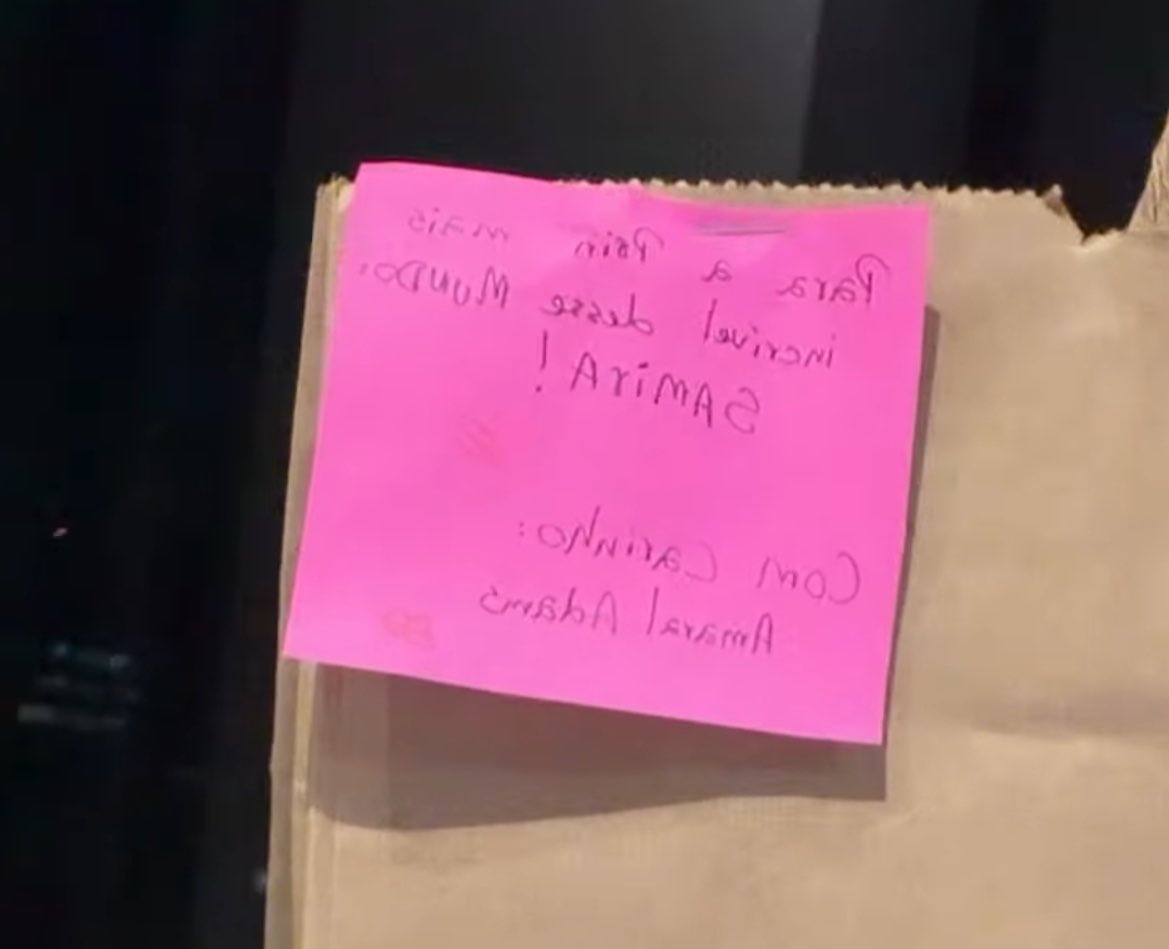 Para a Poin mais
incrivel desse MUNDO:
SAMirA!
Com Carinho:
Amaral Adams